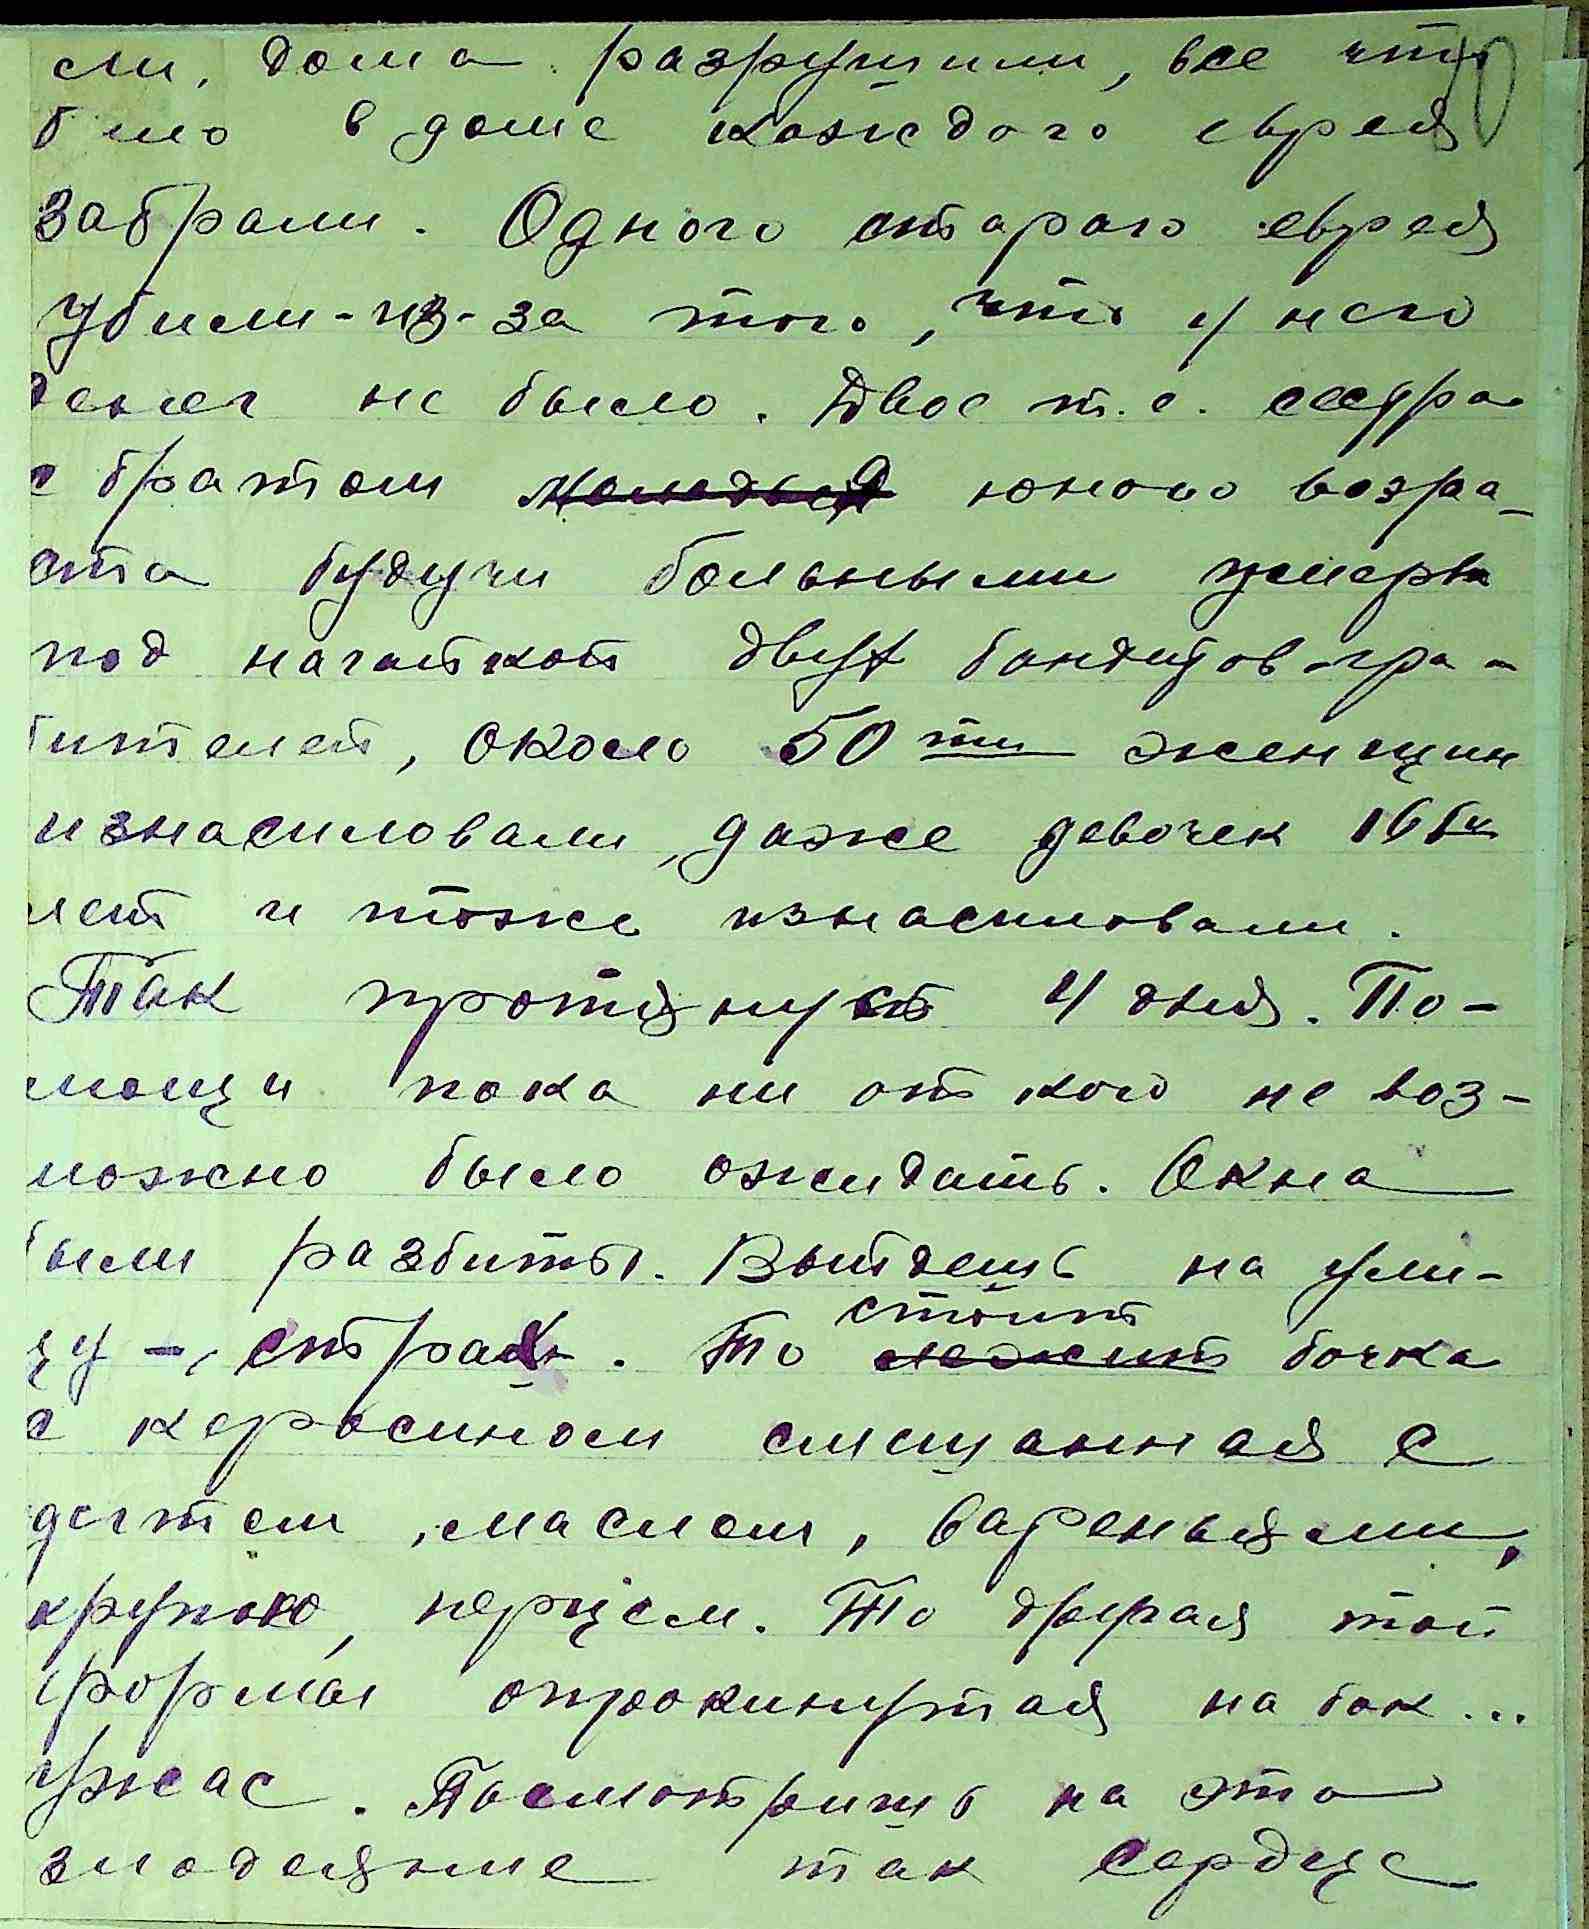 сли, дома разрушили, все что
было в доме каждого еврея
забрали. Одного старого еврея
убили-из-за того, что у него
денег не было. Двое т.е. сестра
с братом юного возра-
ста будучи больными умерли
под нагайкой двух бандитов-гра-
бителей, около 50 ти женщин
изнасиловали, даже девочек
лет и тоже изнасиловали.
Так протянул 4 дня. По-
мощи пока ни от кого не воз-
можно было ожидать. Окна
были разбиты. Выйдешь на ули-
цу -, страх. То стоит лежит бочка
с керосином смешанная с
дегтем, маслом, вареньями,
крупою, перцем. То другая той
формы опрокинутая на бок...
Ужас. Посмотришь на это
злодеяние так сердце